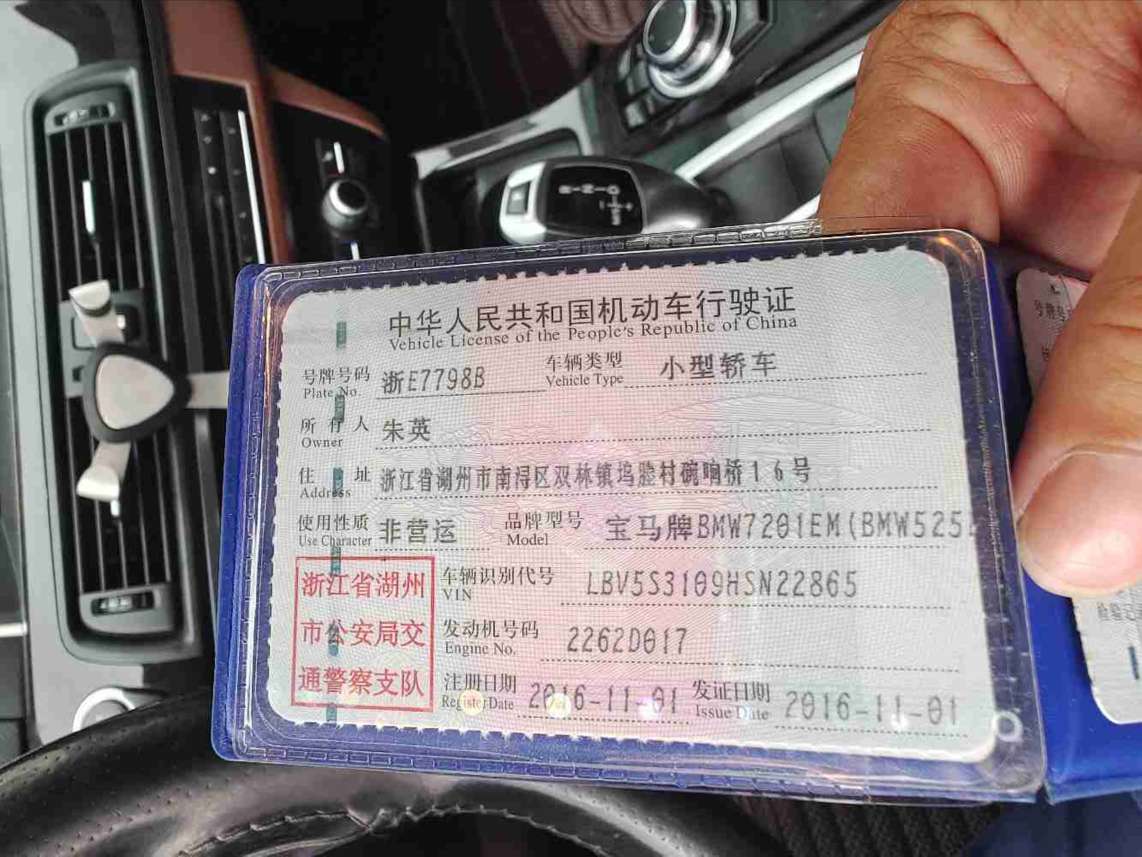 中华人民共和国机动车行驶证
Vehicle License of the People's Republic of China
号牌号码 浙E7798B 车辆类型 小型轿车
Plate No. Vehicle Type
所有人 朱英
Owner
住址 浙江省湖州市南浔区双林镇坞脸村碗响桥16号
Address
使用性质 非营运 品牌型号 宝马牌BMW7201EM(BMW525L
Use Character Model
浙江省湖州
市公安局交
通警察支队
车辆识别代号 LBV5S3109HSN22865
VIN
发动机号码 2262D017
Engine No.
注册日期 2016-11-01 发证日期 2016-11-01
Register Date Issue Date
号牌号